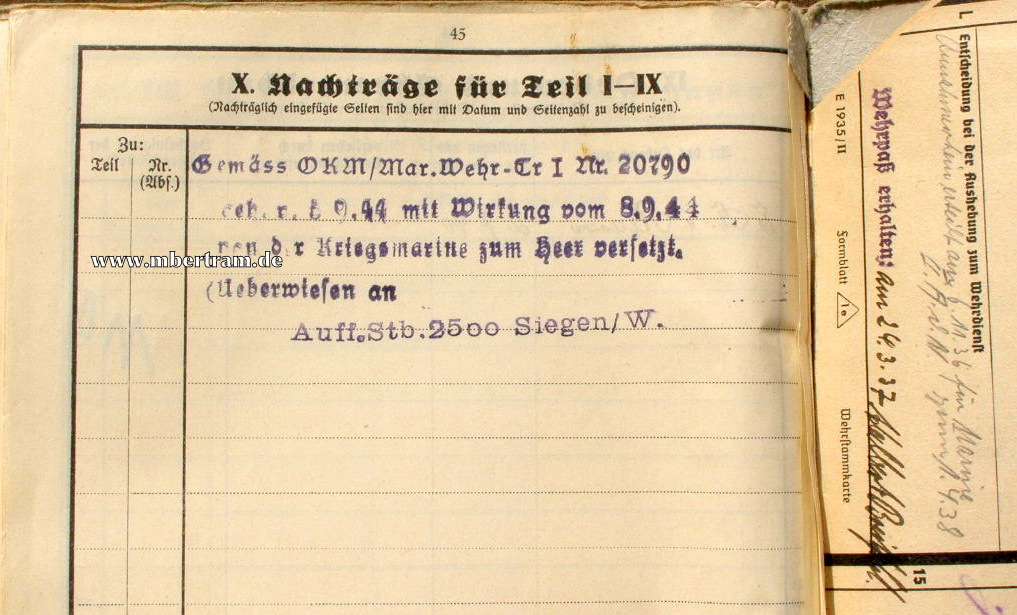 45
X. Nachträge für Teil I—IX
(Nachträglich eingefügte Seiten sind hier mit Datum und Seitenzahl zu bescheinigen).
Zu:
Teil
Nr.
(Abs.)
Gemäss OKM/Mar.Wehr-Tr I Nr. 20790
9.44 mit Wirkung vom 8.9.44
von der Kriegsmarine zum Heer versetzt.
(Ueberwiesen an
Auff.Stb.2500 Siegen/W.
www.mbertram.de
L
Entscheidung bei der Aushebung zum Wehrdienst
11.36 für Marine
4.38
Wehrpaß erhalten: am 24.3.37
E 1935/II
Formblatt 1e
Wehrstammkarte
15